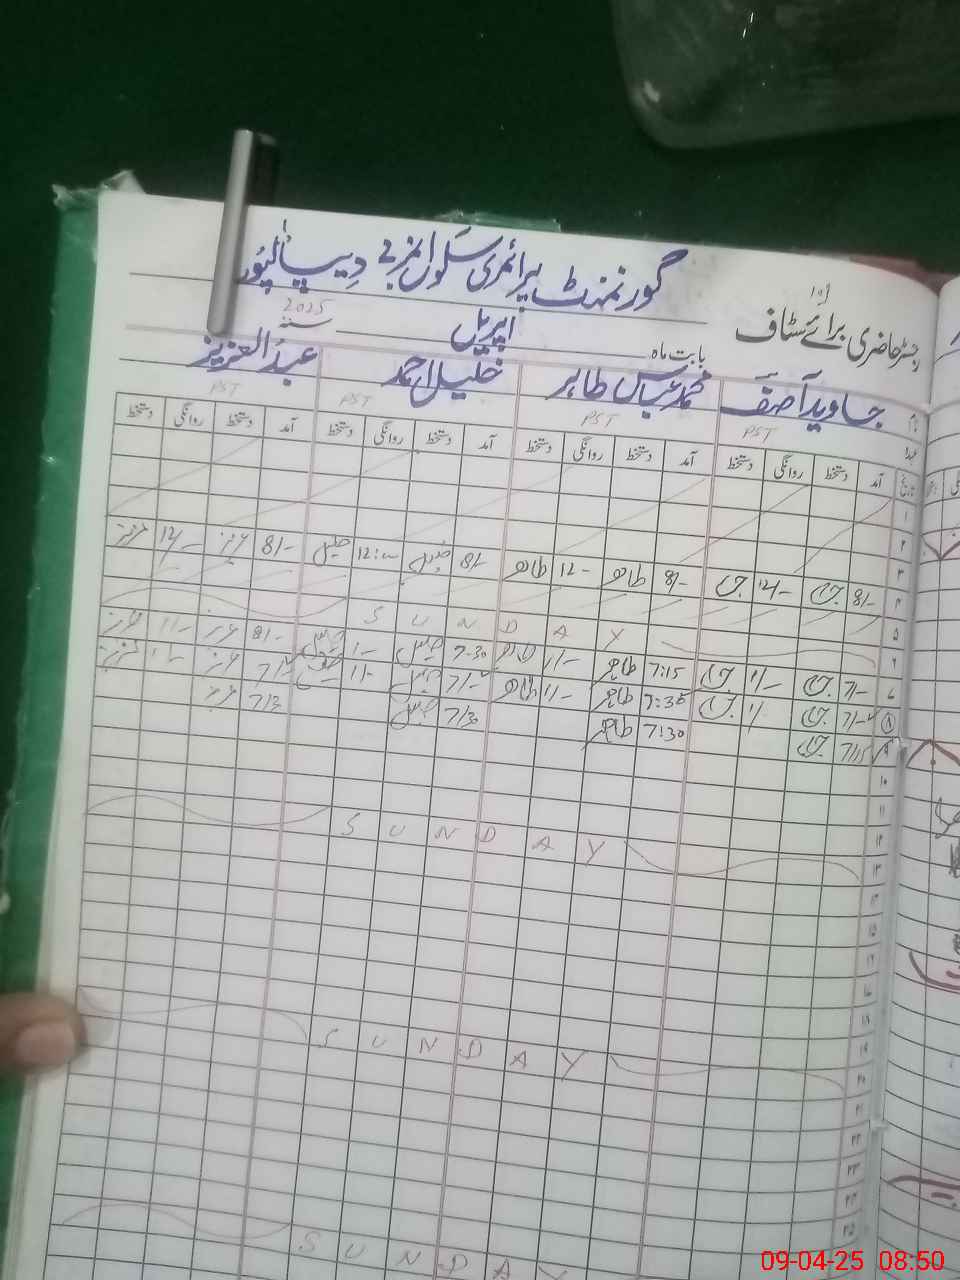 گورنمنٹ پرائمری سکول نمبر 2 دیپالپور
رجسٹر حاضری برائے سٹاف
بابت ماہ اپریل سنہ 2025
نام جاوید آصف محمد عباس طاہر خلیل احمد عبدالعزیز
عہدہ PST PST PST PST
تاریخ آمد دستخط روانگی دستخط آمد دستخط روانگی دستخط آمد دستخط روانگی دستخط آمد دستخط روانگی دستخط
۱
۲
۳
۴ 8/- 12/- 8/- طاہر 12/- طاہر 8/- 12:00 8/- عزیز 12/- عزیز
۵
۶ S U N D A Y
۷ 7/- 1/- 7:15 طاہر 1/- طاہر 7-30 1/- 8/- عزیز 1/- عزیز
۸ 7/- 1/- 7:30 طاہر 1/- طاہر 7/- 1/- 7/- عزیز 1/- عزیز
۹ 7/15 7:30 طاہر 7/30 7/30 عزیز
۱۰
۱۱
۱۲
۱۳ S U N D A Y
۱۴
۱۵
۱۶
۱۷
۱۸
۱۹
۲۰ S U N D A Y
۲۱
۲۲
۲۳
۲۴
۲۵
S U N D A Y
09-04-25 08:50